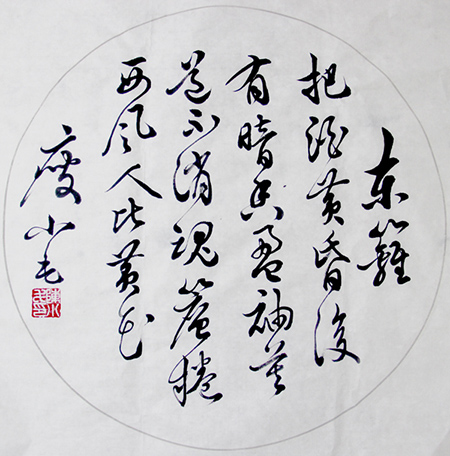 東籬
把酒黄昏後
有暗香盈袖莫
道不消魂簾捲
西风人比黄花
瘦 小毛